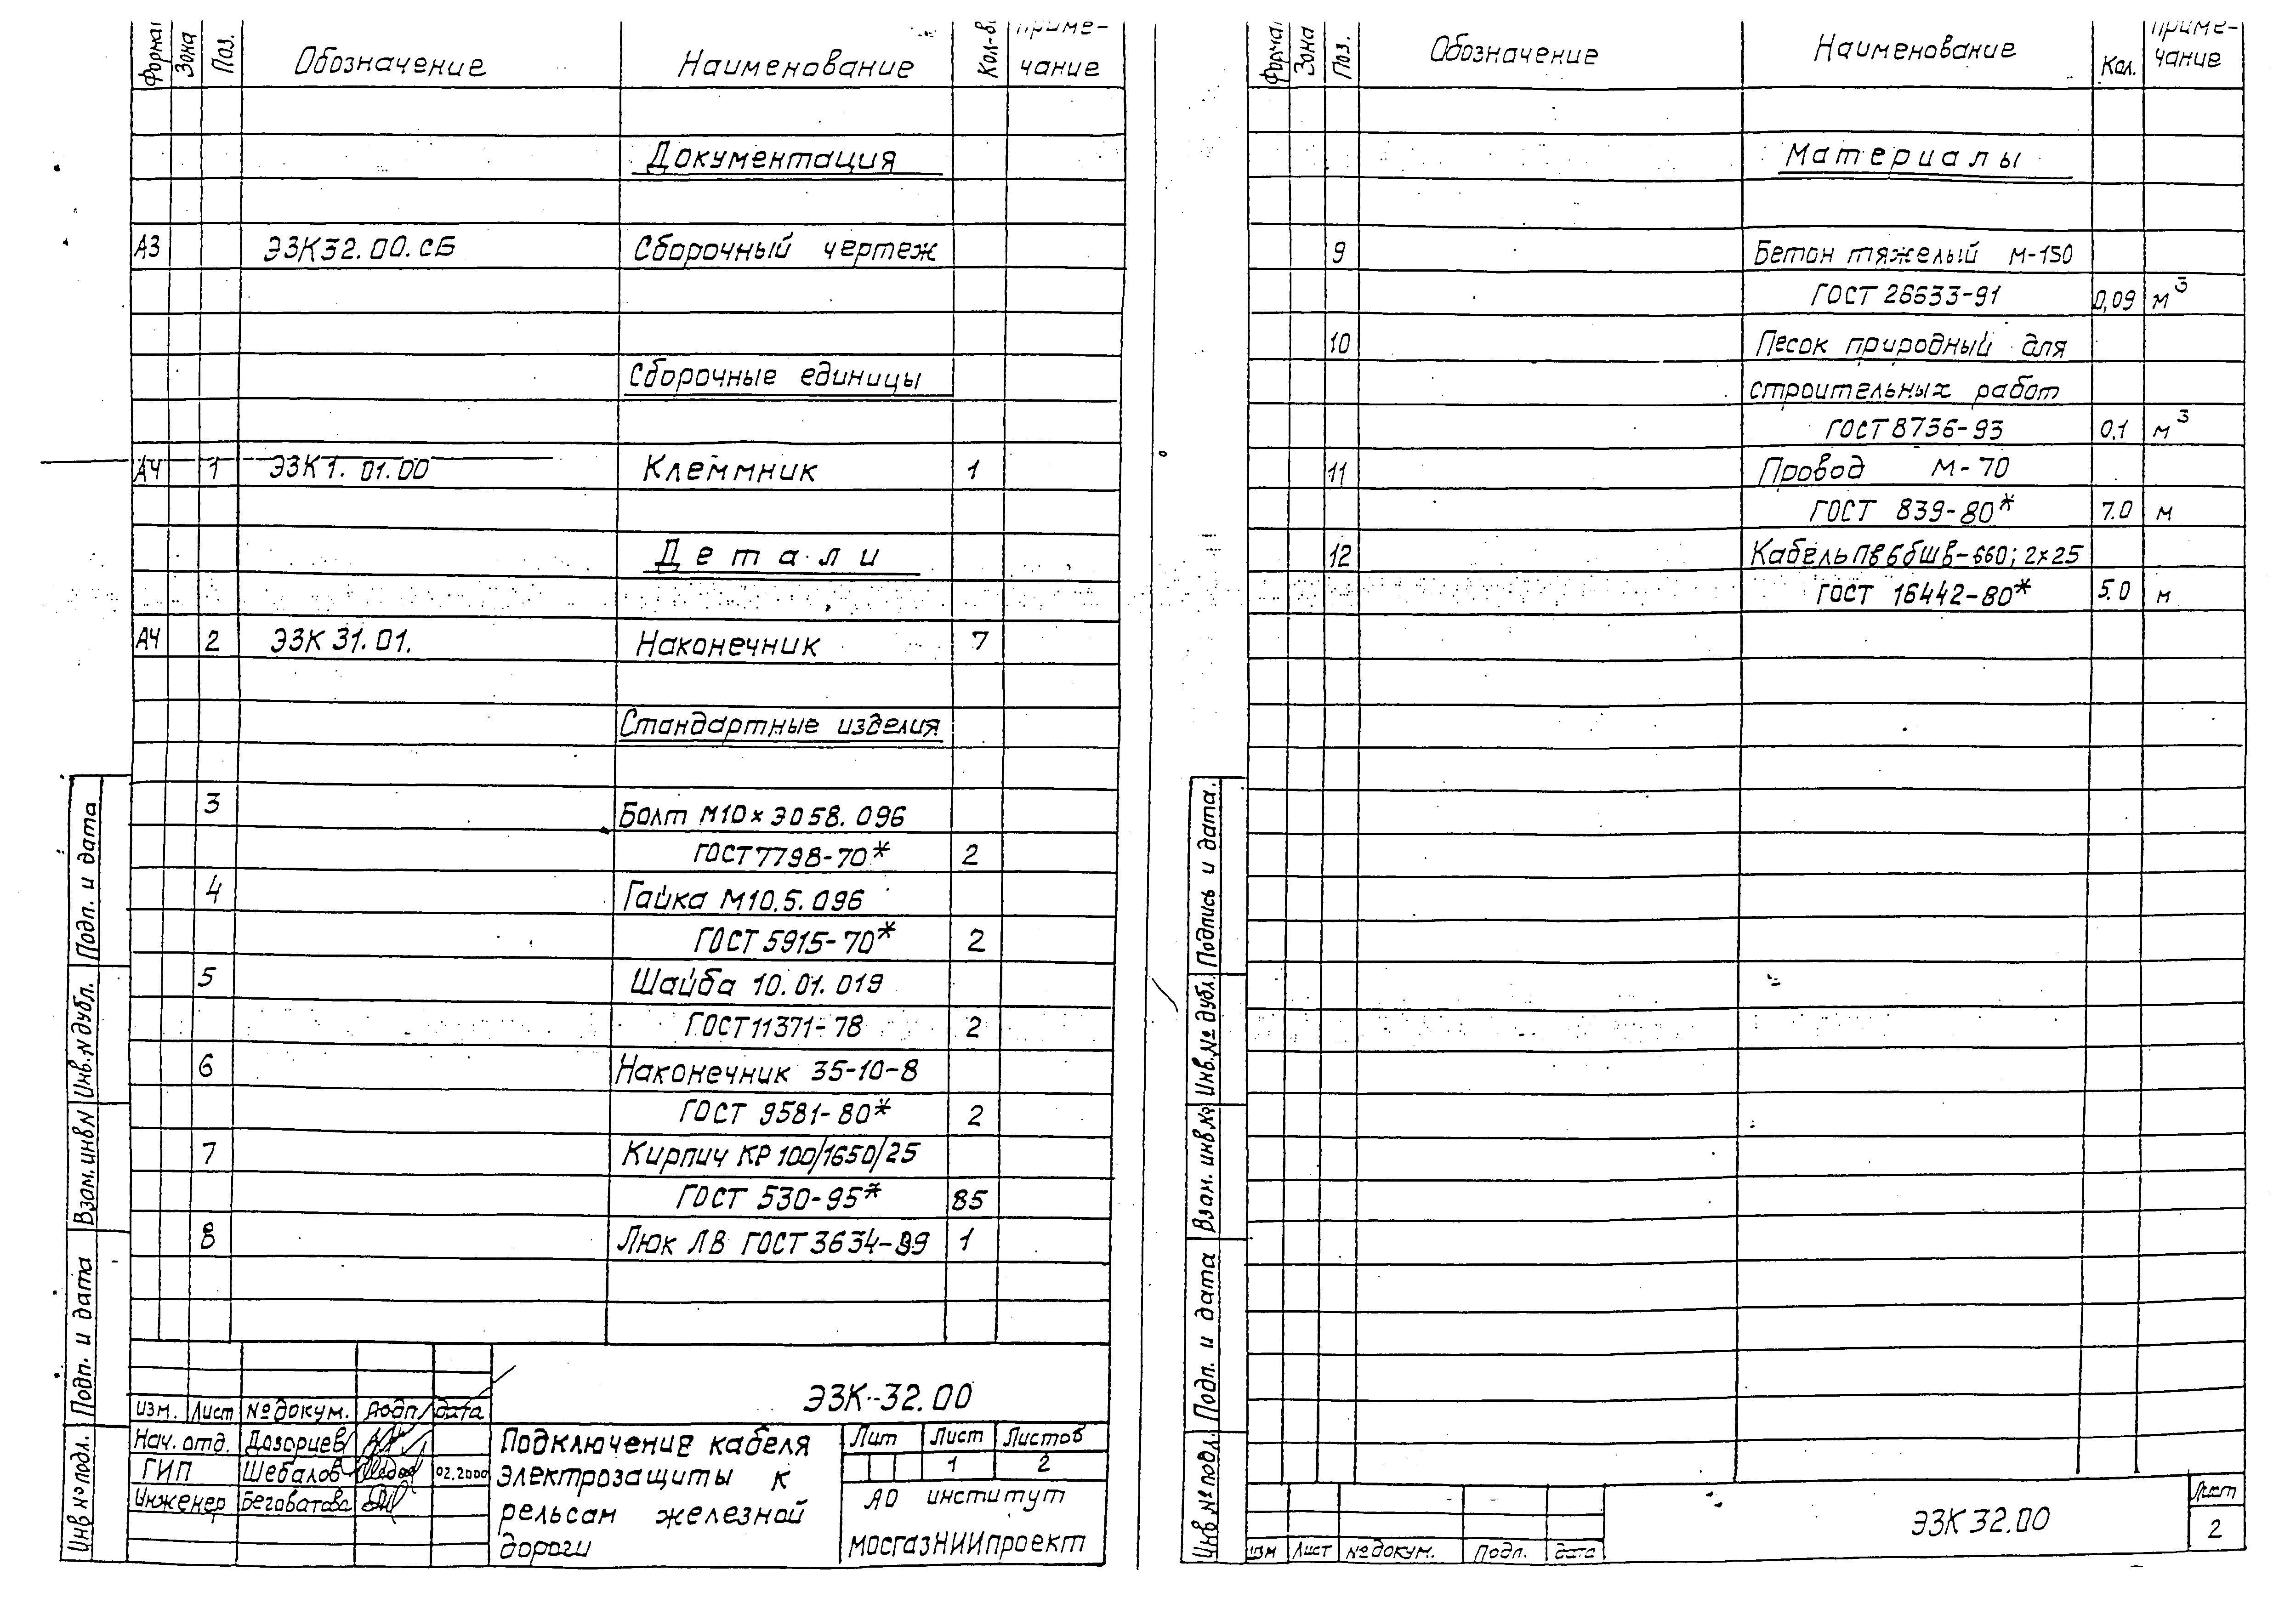 Форма Зона Поз. Обозначение Наименование Кол-в приме-
чание
Документация
А3 ЭЗК32.00.СБ Сборочный чертеж
Сборочные единицы
А4 1 ЭЗК1.01.00 Клеммник 1
Детали
А4 2 ЭЗК 31.01. Наконечник 7
Стандартные изделия
3 Болт М10×3058.096
ГОСТ7798-70* 2
4 Гайка М10.5.096
ГОСТ 5915-70* 2
5 Шайба 10.01.019
ГОСТ11371-78 2
6 Наконечник 35-10-8
ГОСТ 9581-80* 2
7 Кирпич КР 100/1650/25
ГОСТ 530-95* 85
8 Люк ЛВ ГОСТ3634-99 1
Подп. и дата
Инв.N дубл.
Взам. инв N
Подп. и дата
Инв № подл.
Изм. Лист № докум. Подп. дата
Нач. отд. Дозорцев
ГИП Шебалов 02.2000
Инженер Беговатова
ЭЗК-32.00
Подключение кабеля
электрозащиты к
рельсам железной
дороги
Лит Лист Листов
1 2
АО институт
МосгазНИИпроект
Форма Зона Поз. Обозначение Наименование Кол. приме-
чание
Материалы
9 Бетон тяжелый М-150
ГОСТ 26633-91 0,09 м³
10 Песок природный для
строительных работ
ГОСТ8736-93 0.1 м³
11 Провод М-70
ГОСТ 839-80* 7.0 м
12 Кабель ПвБбШв-660; 2×25
ГОСТ 16442-80* 5.0 м
Подпись и дата.
Инв.№ дубл.
Взам. инв.№
Подп. и дата
Инв № подл.
Изм Лист № докум. Подп. дата
ЭЗК 32.00
Лист
2